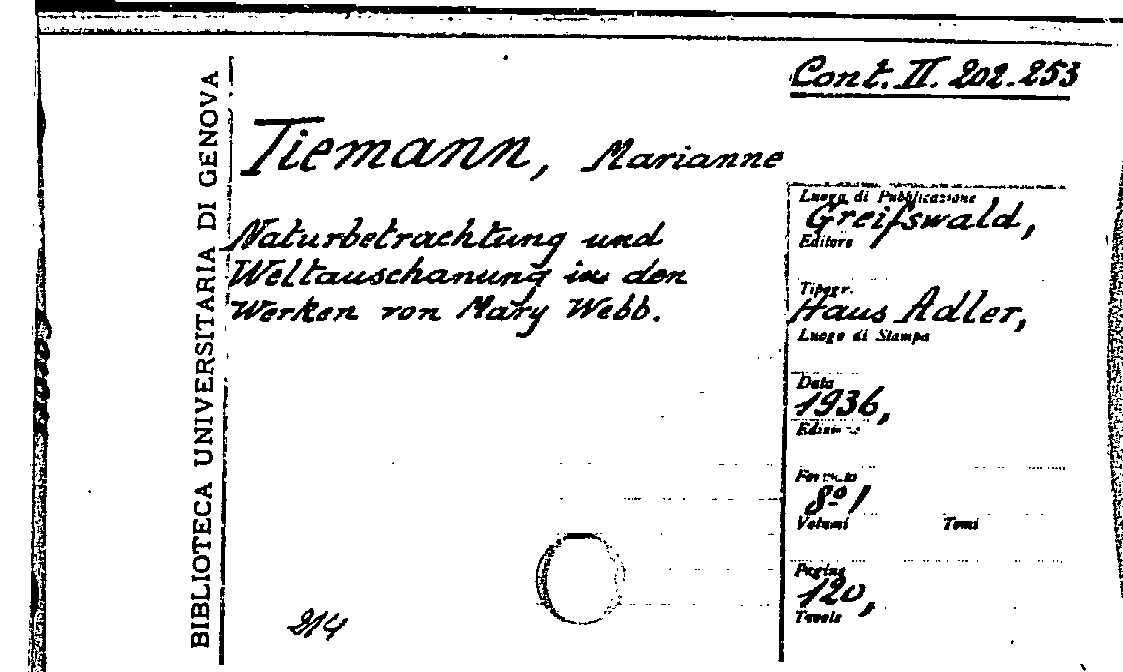 Cont. II. 202. 253
BIBLIOTECA UNIVERSITARIA DI GENOVA
Tiemann, Marianne
Naturbetrachtung und
Weltauschanung in den
Werken von Mary Webb.
Luogo di Pubblicazione
Greifswald,
Editore
Tipogr.
Haus Adler,
Luogo di Stampa
Data
1936,
Edizione
Formato
8º 1
Volumi Tomi
Pagine
120,
Tavole
214